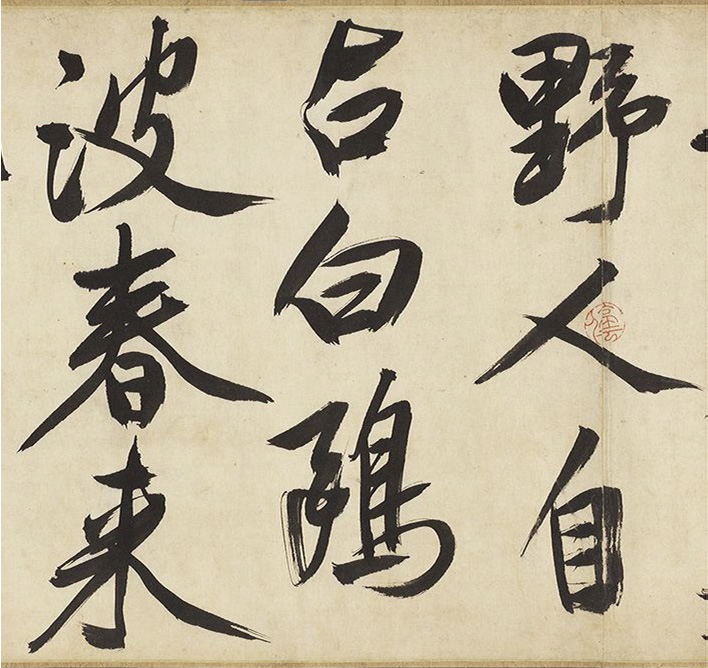 野人自
占白鷗
波春来